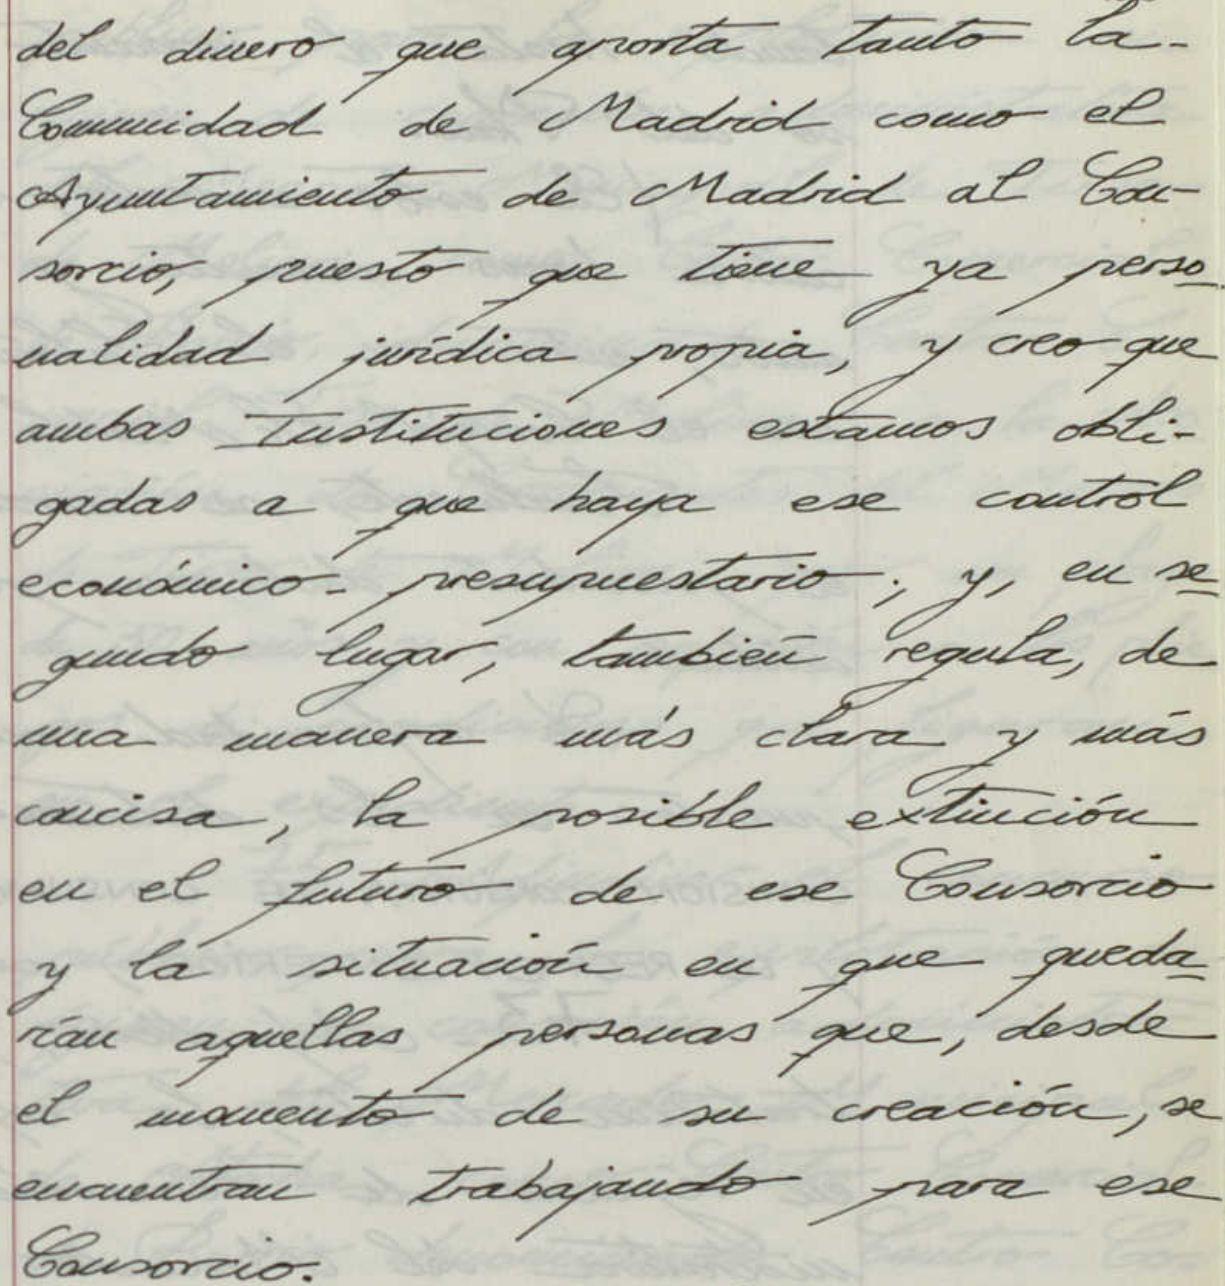 del dinero que aporta tanto la-
Comunidad de Madrid como el
Ayuntamiento de Madrid al Con-
sorcio, puesto que tiene ya perso
nalidad jurídica propia, y creo que
ambas Instituciones estamos obli-
gadas a que haya ese control
económico- presupuestario; y, en se
gundo lugar, también regula, de
una manera más clara y más
concisa, la posible extinción
en el futuro de ese Consorcio
y la situación en que queda
rían aquellas personas que, desde
el momento de su creación, se
encuentran trabajando para ese
Consorcio.